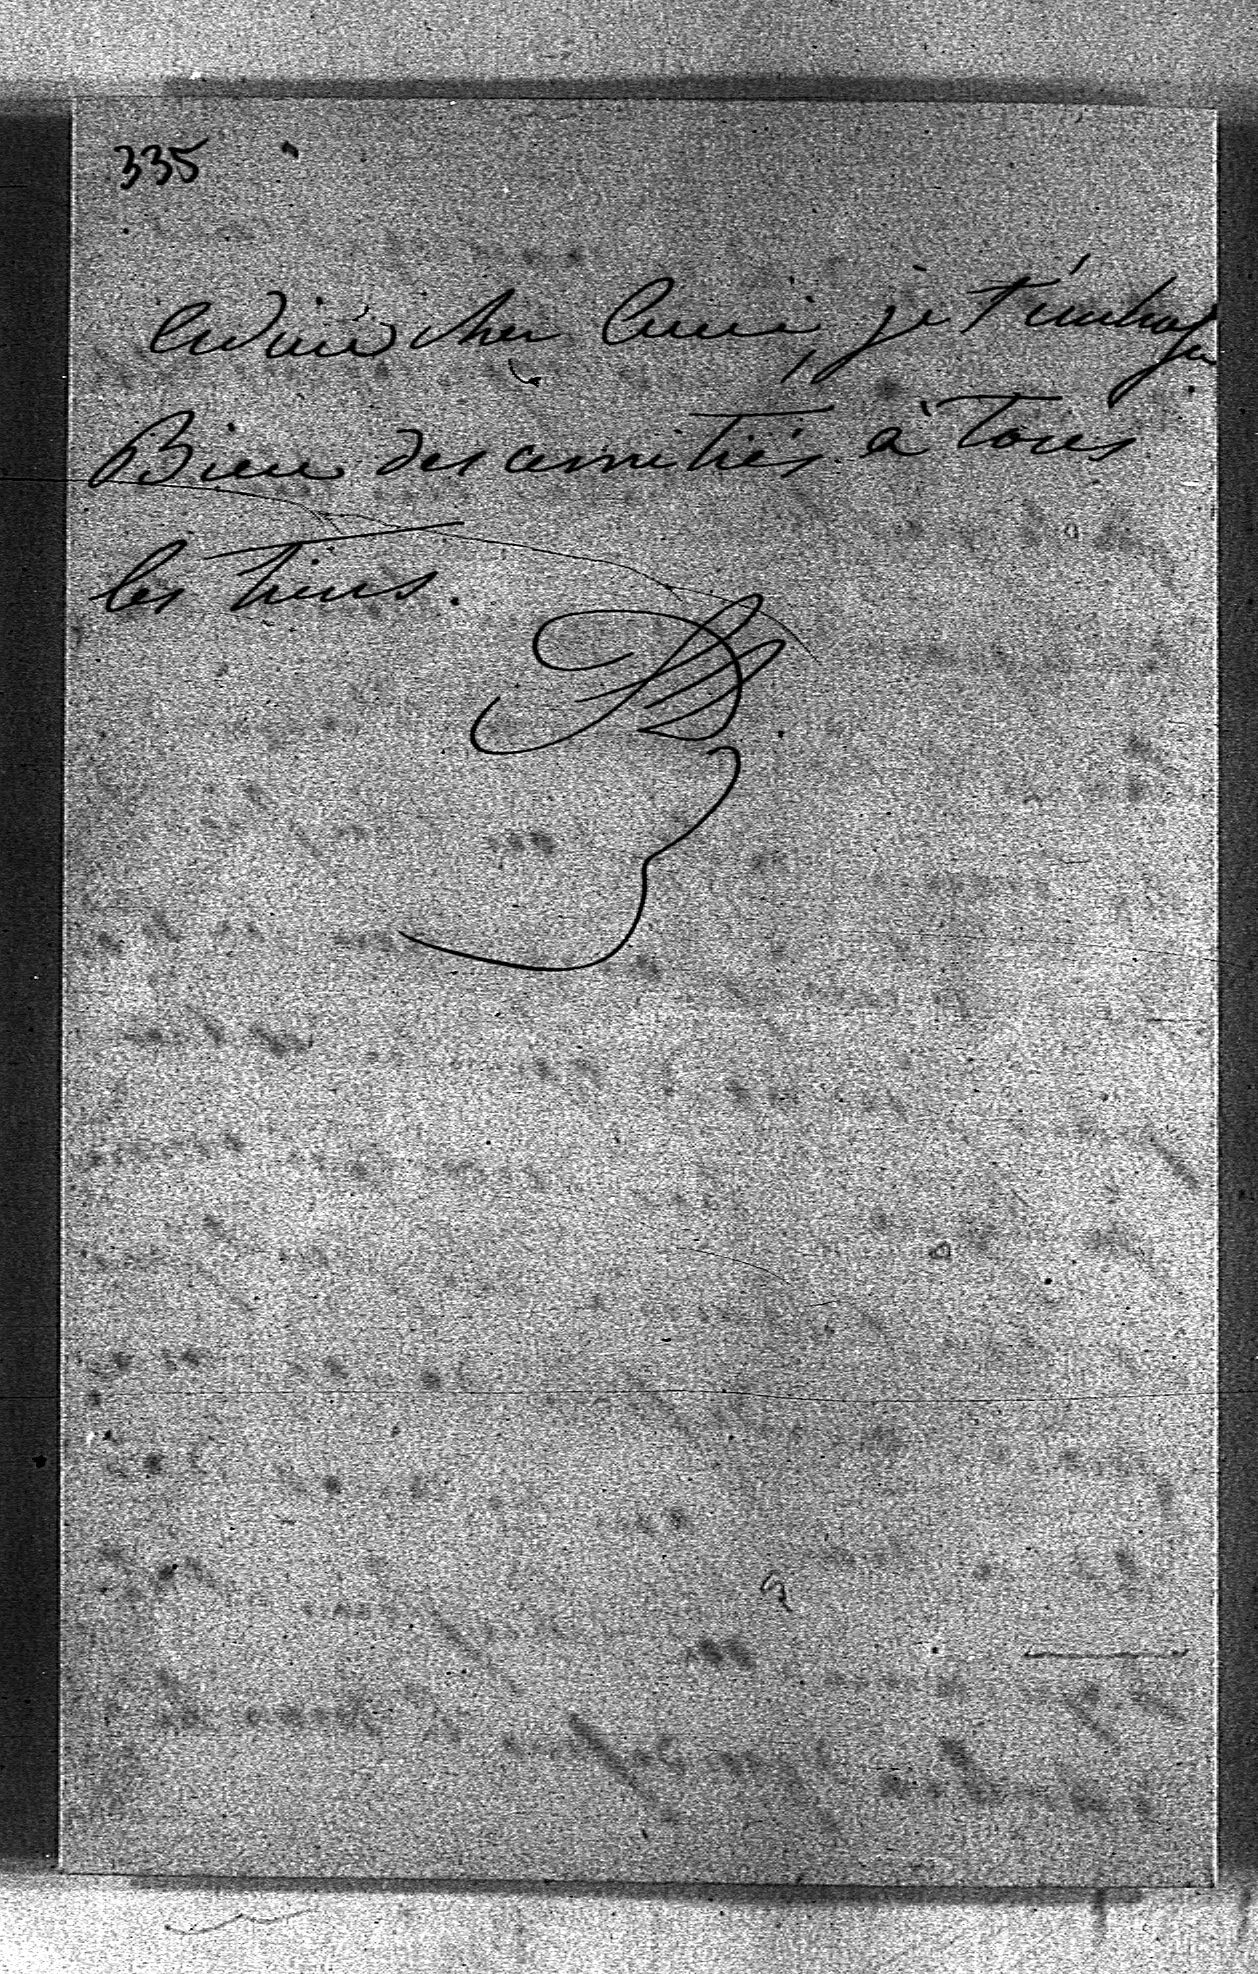 335
Adieu cher Ami, je t'embrasse
Bien des amitiés à tous
les tiens.